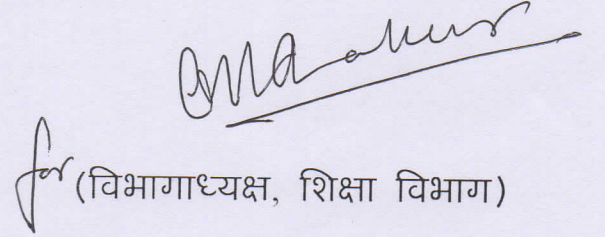 for (विभागाध्यक्ष, शिक्षा विभाग)